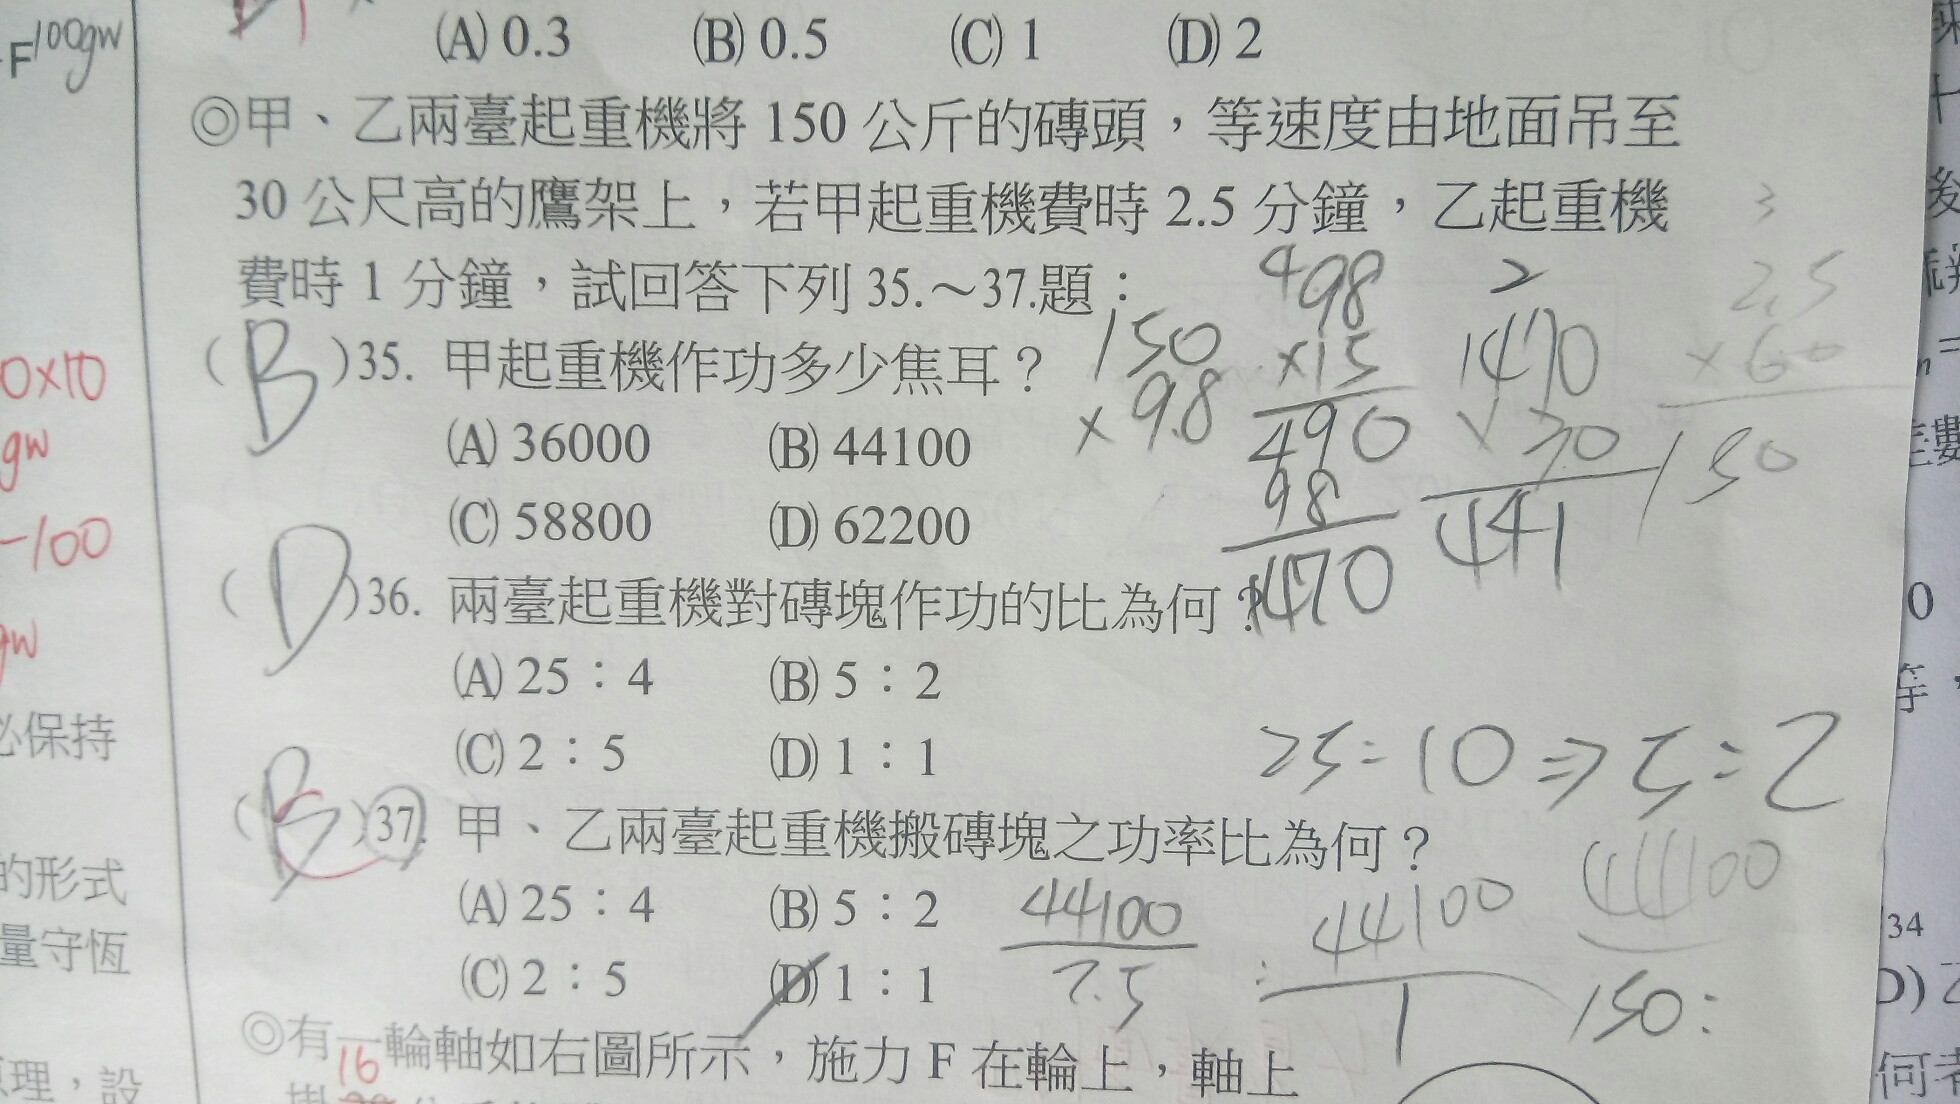 F 100gw
(A) 0.3 (B) 0.5 (C) 1 (D) 2
◎甲、乙兩臺起重機將 150 公斤的磚頭，等速度由地面吊至
30 公尺高的鷹架上，若甲起重機費時 2.5 分鐘，乙起重機
費時 1 分鐘，試回答下列 35.～37.題：
(B)35. 甲起重機作功多少焦耳？
(A) 36000 (B) 44100
(C) 58800 (D) 62200
150
×9.8
498
×15
490
98
1470
2
1470
×30
441
3
2.5
×60
150
(D)36. 兩臺起重機對磚塊作功的比為何？
(A) 25：4 (B) 5：2
(C) 2：5 (D) 1：1
25:10⇒5:2
(B)37. 甲、乙兩臺起重機搬磚塊之功率比為何？
(A) 25：4 (B) 5：2
(C) 2：5 (D) 1：1
44100
2.5
:
44100
1
44100
150:
◎有一輪軸如右圖所示，施力 F 在輪上，軸上
16
0×10
gw
-100
gw
必保持
的形式
量守恆
理，設
0
34
D) 乙
何者